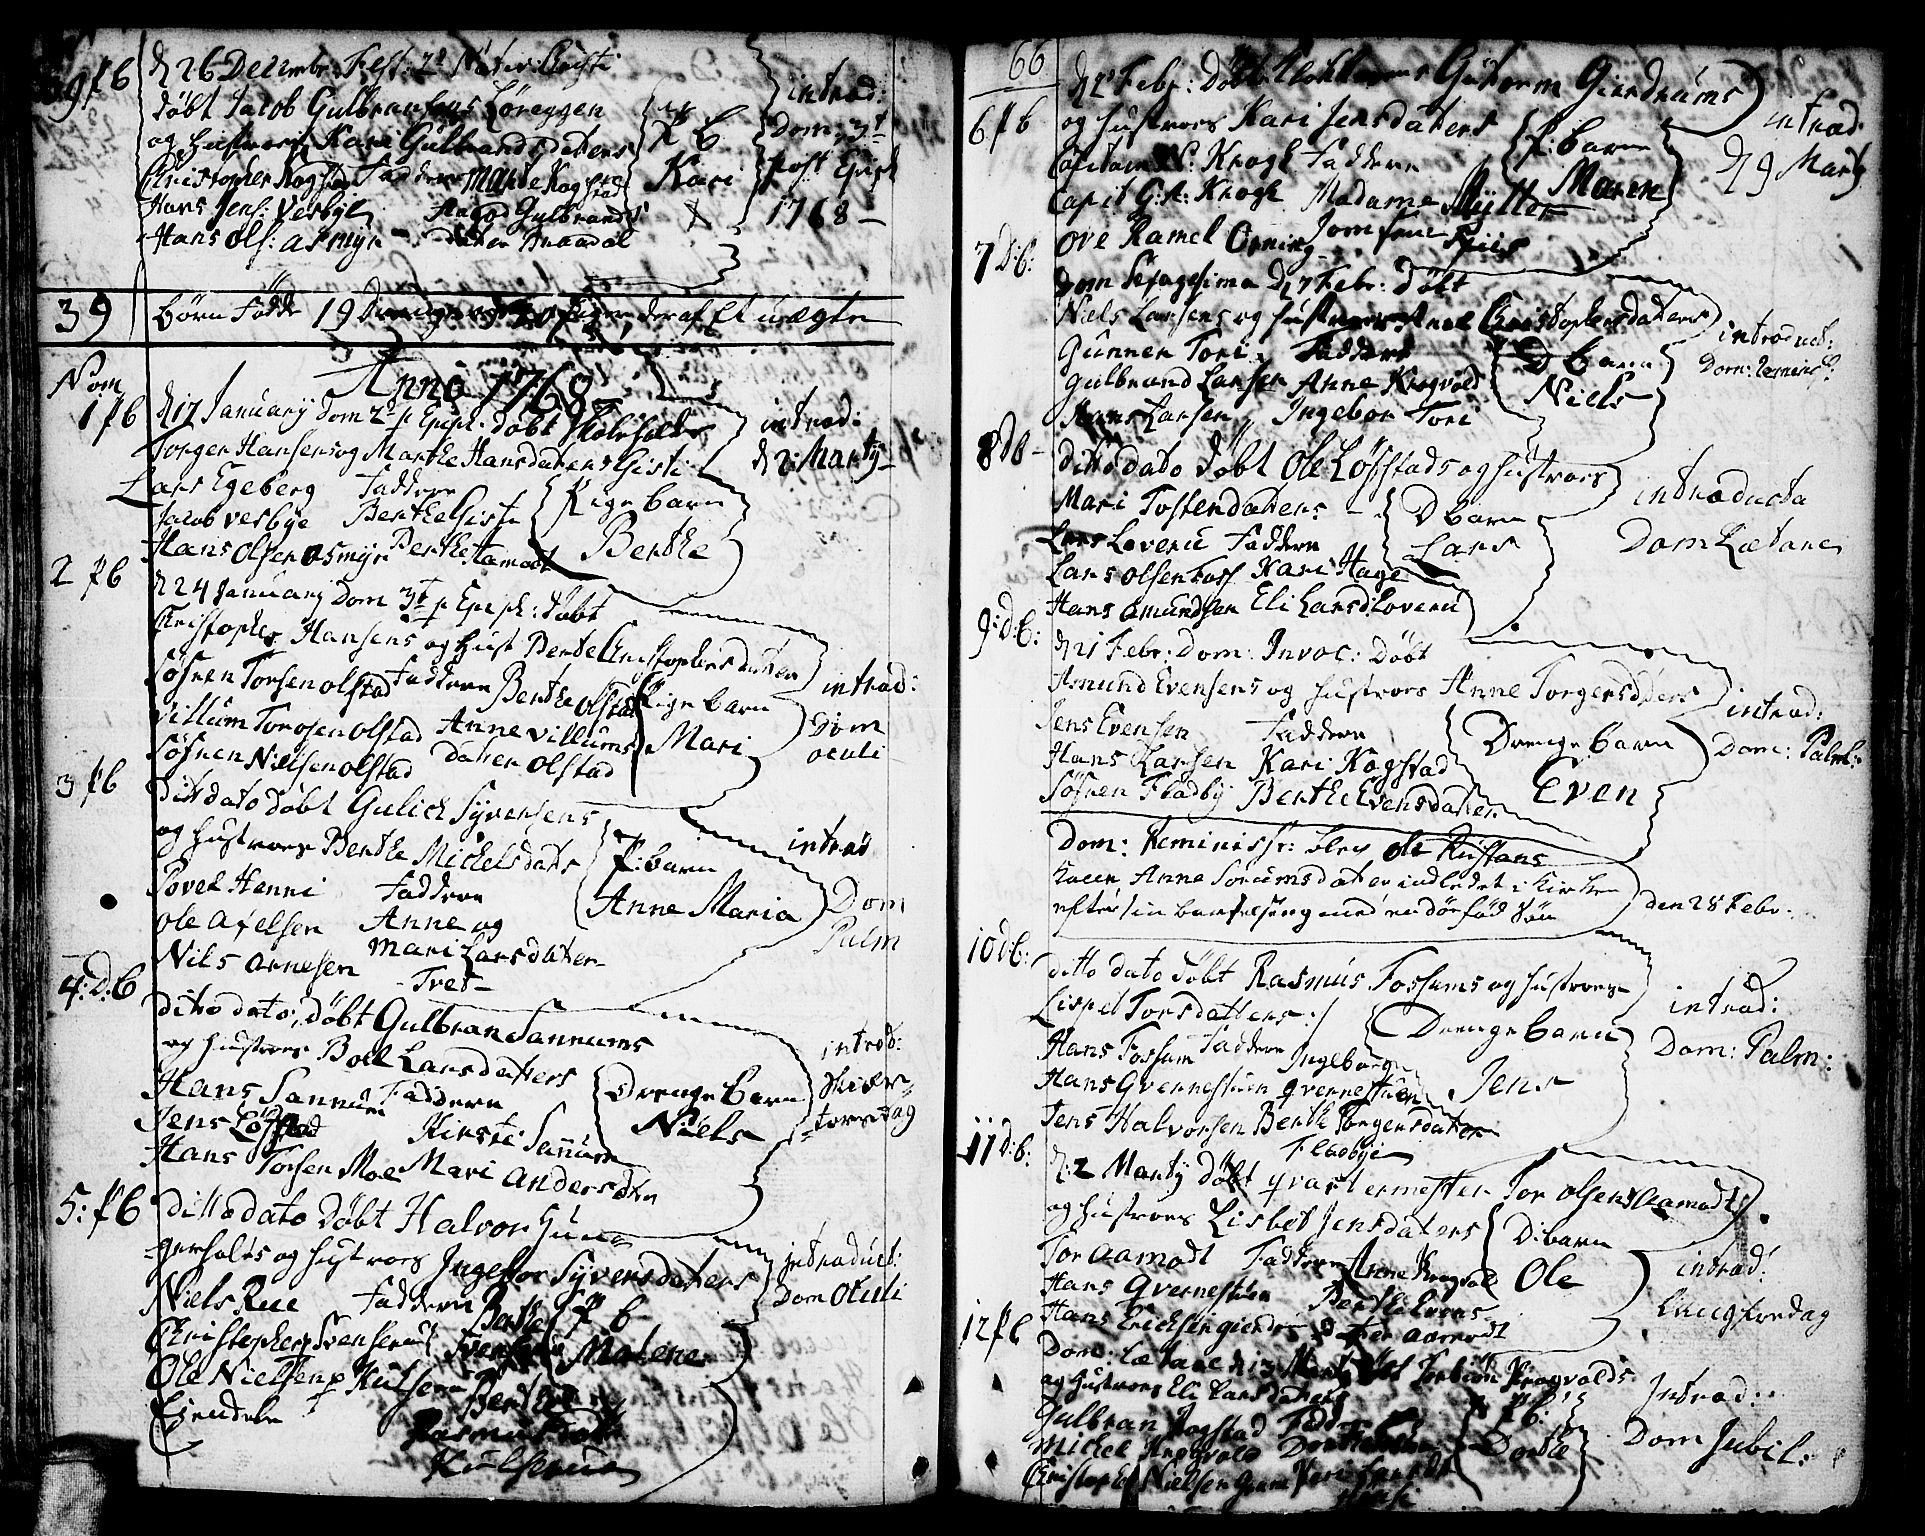 39 P b
d 26 Decembr: Fest: 2d Nativ: Christi
døbt Jacob Gulbransens Løreggen
og Hustroes Kari Gulbrandsdaters
Christopher Kogstad Faddere Marte Kogstad
Hans Jens: Vesbye Gulbrands
Hans Ols: Asmyr dater Braadal
P b
Kari
introd:
Dom: 3t
post Epiph
1768
39 børn Fødde 19 Drenge og 20 Piger, deraf Et uægte
Anno 1768
Nom
1 P b
d 17 January Dom 2d p Epiph: døbt
Torger Hansens og Marthe Hansdaters Gisti
Lars Egeberg Faddere
Jacob Vesbye Berthe Gistie
Hans Olsen Asmyr Berthe Hamodt
Pige barn
Berthe
introd:
d 2: Marty
2 P b
d 24 January Dom 3t p Epiph: døbt
Christopher Hansens og Hust Berte Christophersdaters
Søfren Torsen Olstad Faddere Berthe Olstad
Villum Torosen Olstad Anne Villums
Søfren Nielsen Olstad Dater Olstad
Pige barn
Mari
introd:
Dom
oculi
3 P b
Ditto dato døbt Gulich Syversens
og Hustroes Berthe Michelsdaters
Povel Henni Faddere
Ole Axelsen Anne og
Nils Arnesen Mari Larsdater
Tvet
P: barn
Anne Maria
introd
Dom
Palm
4: D: b
Ditto dato, Døbt Gulbran Sannums
og Hustroes Boel Larsdatters
Hans Sannum Faddere
Jens Løfstad Kirste Sannum
Hans Torsen Moe Mari Andersdtr
Drenge Barn
Niels
introd:
Skiær
torsdag
5: P b
Ditto dato Døbt Halvor Hun
gerholts og Hustroes Ingebor Syversdaters
Niels Rue Faddere Berthe
Christopher Svenserud Svenserud
Ole Nielsen Hulserud Berthe
Eiendelen
Rasmus
Hulserud
P b
Malene
introduct:
Dom Oculi
66
6 P b
d 2 Febr: Døbt Klokkerens Gutorm Gierdrums
og Hustroes Kari Jensdaters
Capitain N: Krogh Faddere
Capit G: A: Krogh Madame Mylter
Ove Ramel Jomfrue Friis
P: Barn
Maren
introd
d 9 Marty
7 D: b:
Dom Sexagesima d 7 Febr: Døbt
Niels Larsens og Hustroes Anne Christophersdaters
Gunner Tori Faddere
Gulbrand Larsen Anne Krogvold
Hans Larsen Ingebor Tori
D barn
Niels
introduct:
Dom: Reminis:
8 D b
ditto dato døbt Ole Løfstads og Hustroes
Mari Tostendaters
Lars Loveru Faddere
Lars Olsen Foss Kari Hage
Hans Amundsen Eli Larsd: Loveru
D barn
Lars
introducta
Dom Lætare
9: D: b:
d 21 Febr: Dom: Invoc: Døbt
Amund Evensens og Hustroes Anne Torgersdters
Jens Evensen Faddere
Hans Larsen Kari Kogstad
Søfren Fladby Berthe Evensdater
Drenge barn
Even
introd:
Dom: Palm:
Dom: Reminissc: blev Ole
Anne Sørumsdater indledet i Kirken
efter sin barselseng med en dødfød Søn
den 28 Febr:
10 D b:
Ditto dato døbt Rasmus Fossums og Hustroes
Lisbet Torsdatters
Hans Fossum Faddere Ingeborg
Hans Qvernestuen Qvernestuen
Jens Halvorsen Berthe Torgersdater
Fladbye
Drenge barn
Jens
introd:
Dom: Palm:
11 D: b:
d: 2 Marty døbt Qvartermester Tor Olsens Aamodts
og Hustroes Lisbet Jensdaters
Tor Aamodt Faddere Anne Krogvold
Hans Qvernestuen Berthe Evens
Hans Erichsen Gierdrum dater Aamodt
D: barn
Ole
introd:
Langfredag
12 P b
Dom: Lætare d 13 Marty døbt Torbiørn Krogvolds
og Hustroes Eli Larsdaters
Gulbran Kogstad Faddere
Michel Krogvold Dorthe
Christopher Nielsen Kari
P b:
Dorthe
Introd:
Dom Jubil: